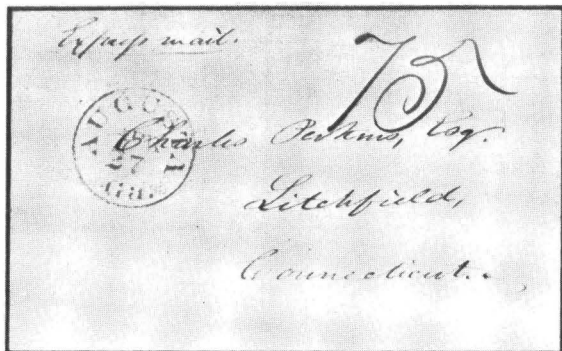 Express mail.
75
AUGUSTA
27
Ga.
Charles Perkins, Esq.
Litchfield,
Connecticut.